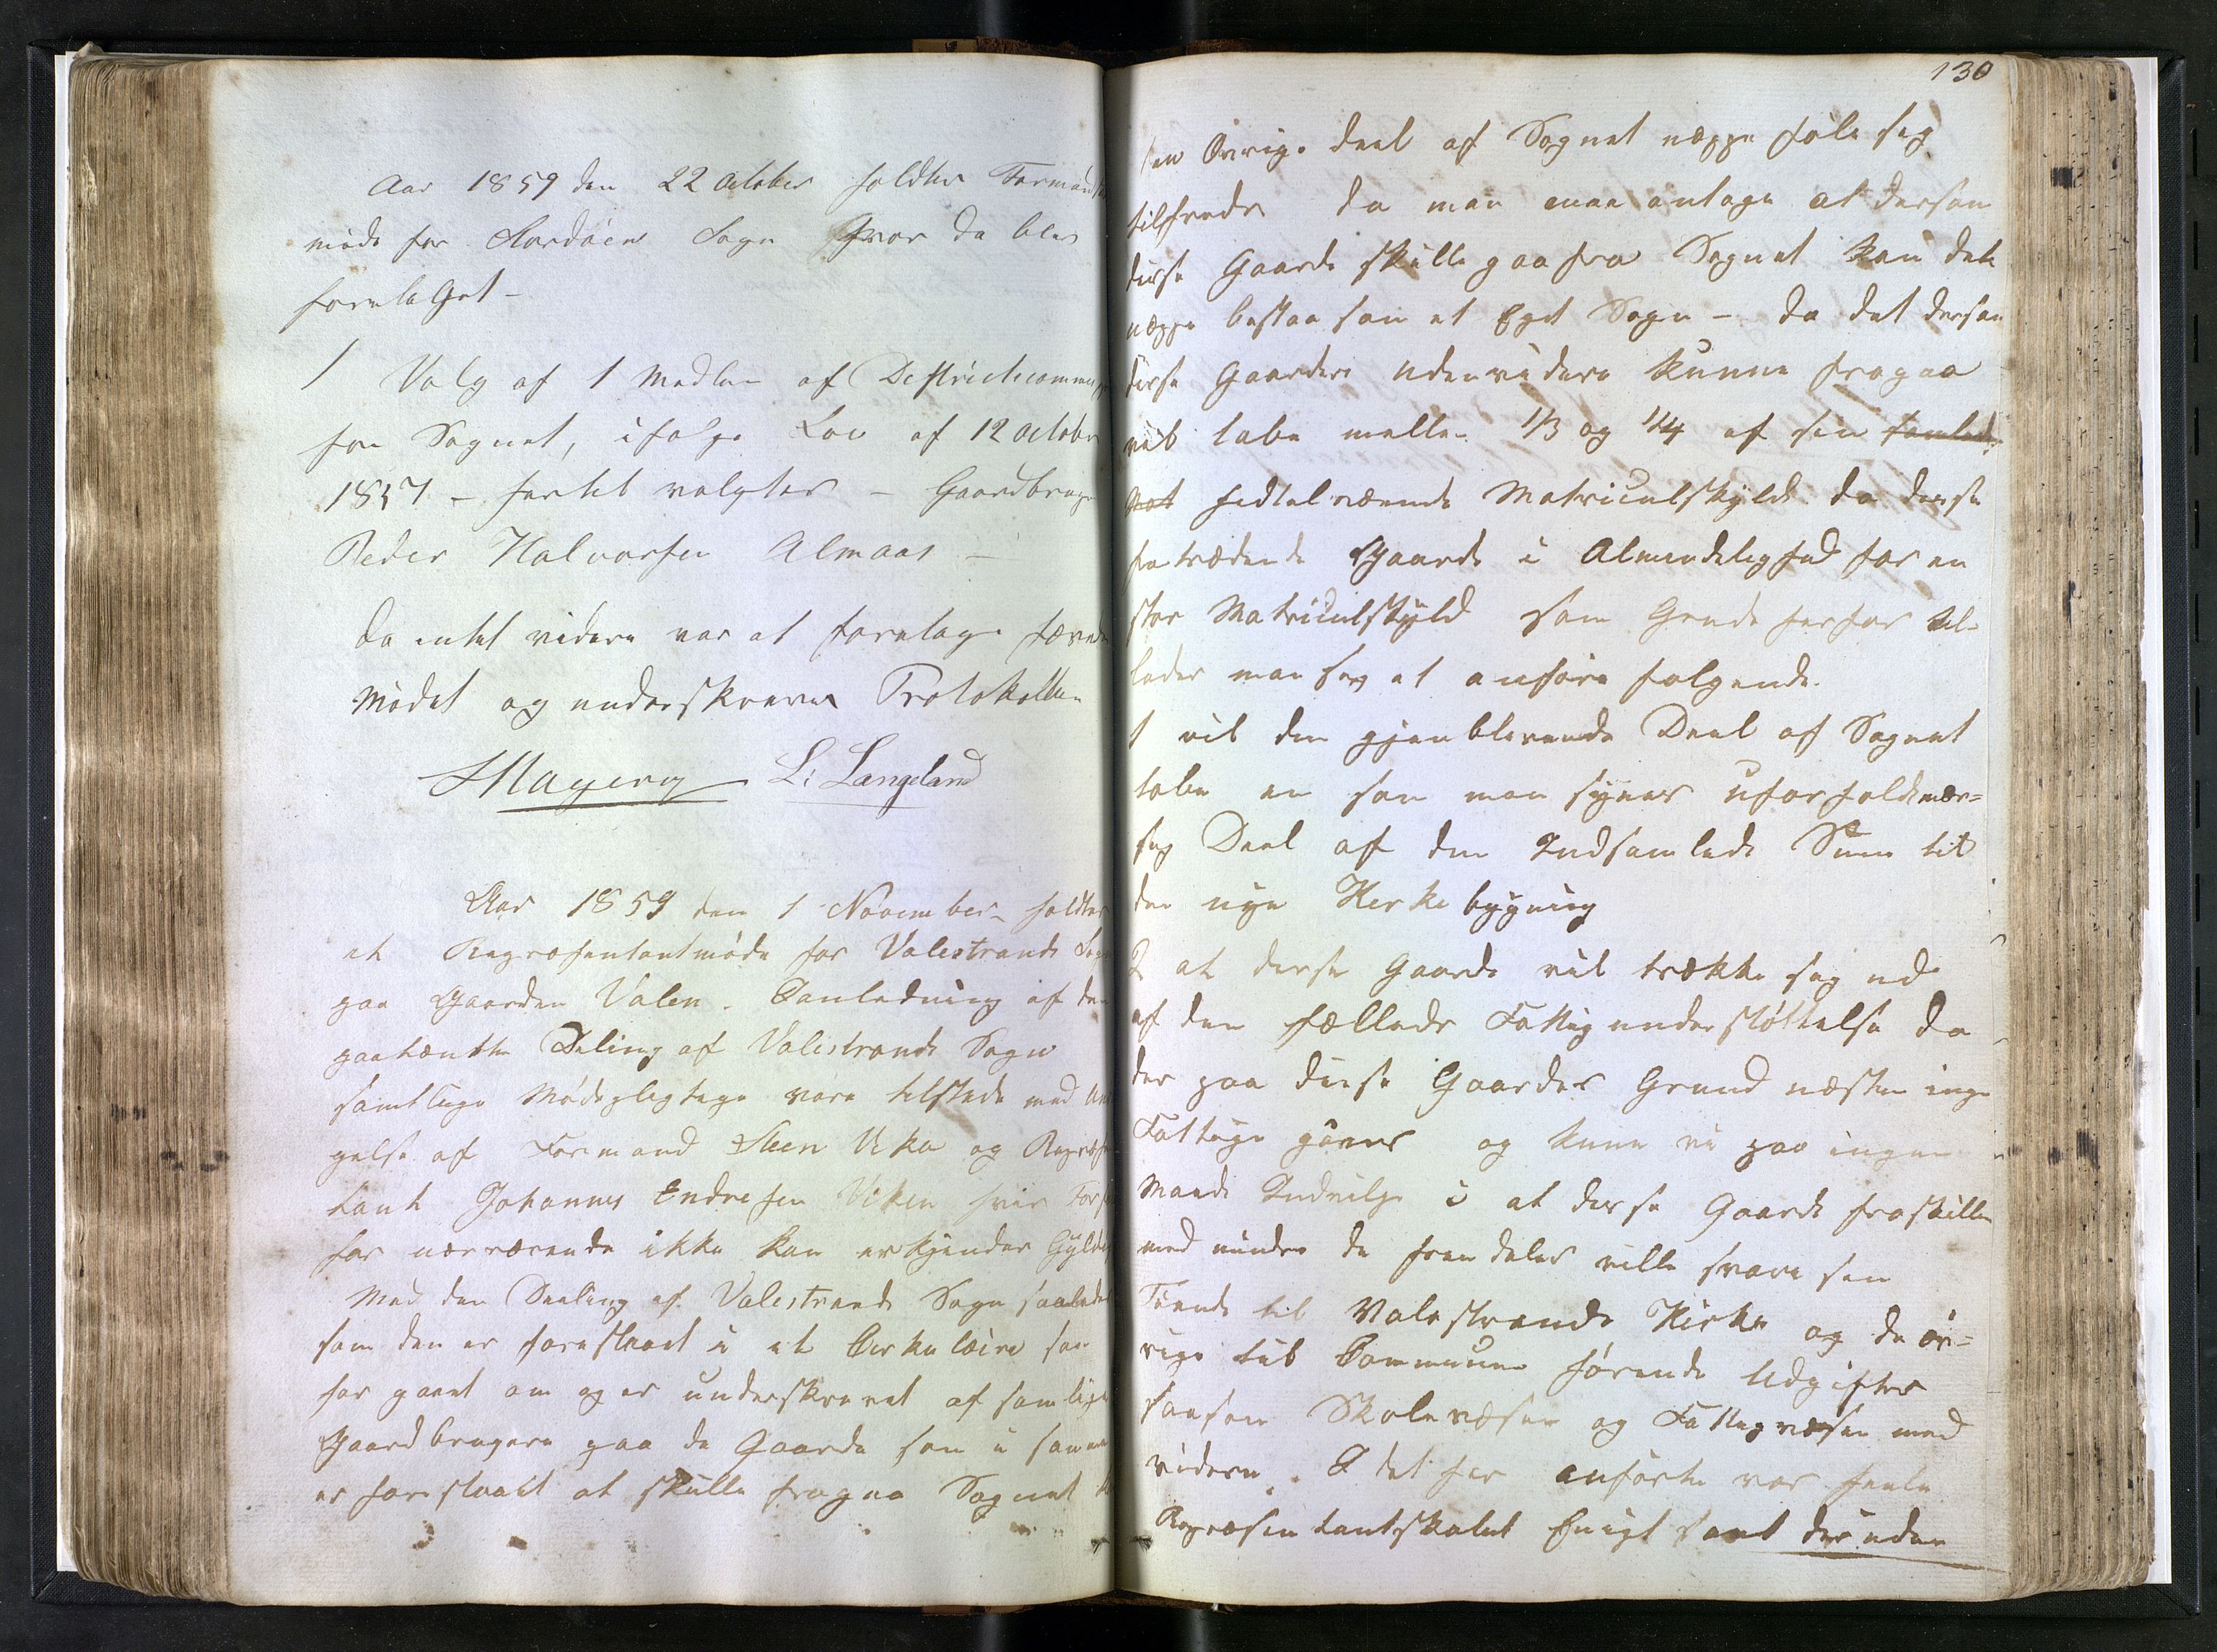 Aar 1859 den 22 October holdtes Formands
møde for Stordøen Sogn hvor da blev
foretaget –
1 Valg af 1 Medlem af Districtscommis
for Sognet, ifølge Lov af 12 October
1857 – hertil valgtes – Gaardbruger
Peder Halvorsen Almaas –
Da intet videre var at foretage hævedes
Mødet og underskreves Protokollen
L: Langeland
Aar 1859 den 1 November holdtes
et Repræsentantmøde for Valestrands Sogn
paa Gaarden Valen. I anledning af den
paatænkte Deling af Valestrands Sogn
samtlige Mødepligtige vare tilstede med Und
gelse af Formand Steen Vika og Repræsen
tant Johannes Endresen Viken hvis Forfald
for nærværende ikke kan erkjendes Gyldig
Med den Deeling af Valestrands Sogn saaledes
som den er foreslaaet i et Cirkulære som
har gaaet om og er underskrevet af samtlige
Gaardbrugere paa de Gaarde som i samme
er foreslaaet at skulle fragaa Sognet
130
den Øvrige deel af Sognet neppe føle seg
tilfreds da man maa antage at dersom
disse Gaarde skulle gaa fra Sognet kan det
neppe bestaa som et Eget Sogn – da det dersom
disse Gaarder uden videre kunne fragaa
vil tabe mellem 1/3 og 1/4 af sin samlede
hidtilværende Matriculskyld da disse
fratrædende Gaarde i Almindelighed har en
stor Matriculskyld som Grunde herfor til-
lader man seg at anføre følgende.
1 vil den gjenblevende Deel af Sognet
tabe en som man synes uforholdsmæs=
sig Deel af den Indsamlede Sum til
den nye Kirkebygning
2 at disse Gaarde vil trække seg ud
af den fælleds Fattigunderstøttelse da
der paa disse Gaardes Grund næsten ingen
Fattige gives og kunne vi paa ingen
Maade Indvilge i at disse Gaarde fraskilles
med mindre de fremdeles ville svare sin
Tiende til Valestrands Kirke og de øv=
rige til Communen hørende Udgifter
saasom Skolevæsen og Fattigvæsen med
videre. I det her anførte var heele
Repræsentantskabet Enigt samt desuden